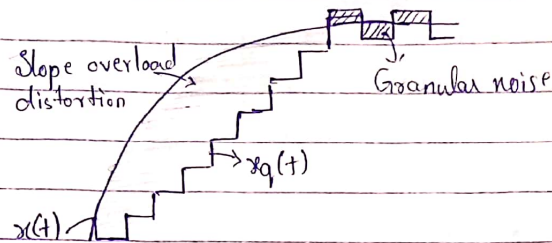 Slope overload
distortion
Granular noise
xq(t)
x(t)